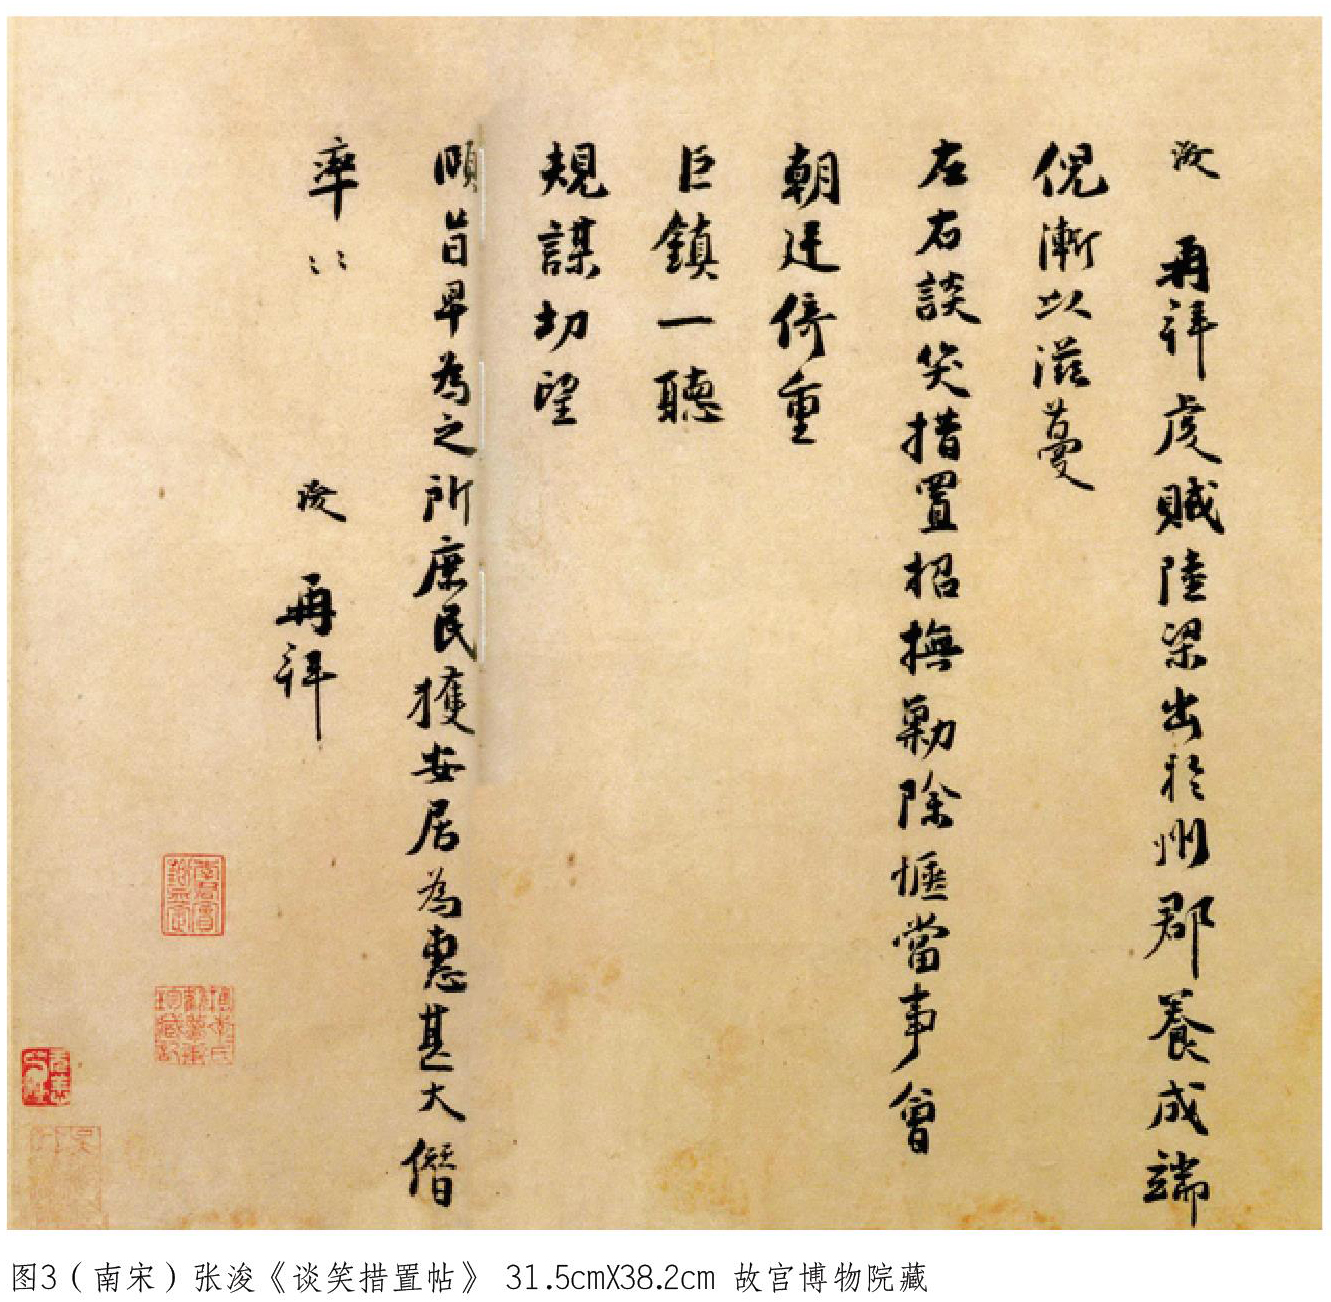 浚再拜虔贼陸梁出於州郡養成端
倪漸以滋蔓
左右談笑措置招撫勦除愜當事會
朝廷倚重
巨鎮一聽
規謀切望
頤旨早為之所庶民獲安居為惠甚大僭
率〻
浚再拜
图3（南宋）张浚《谈笑措置帖》 31.5cmX38.2cm 故宫博物院藏